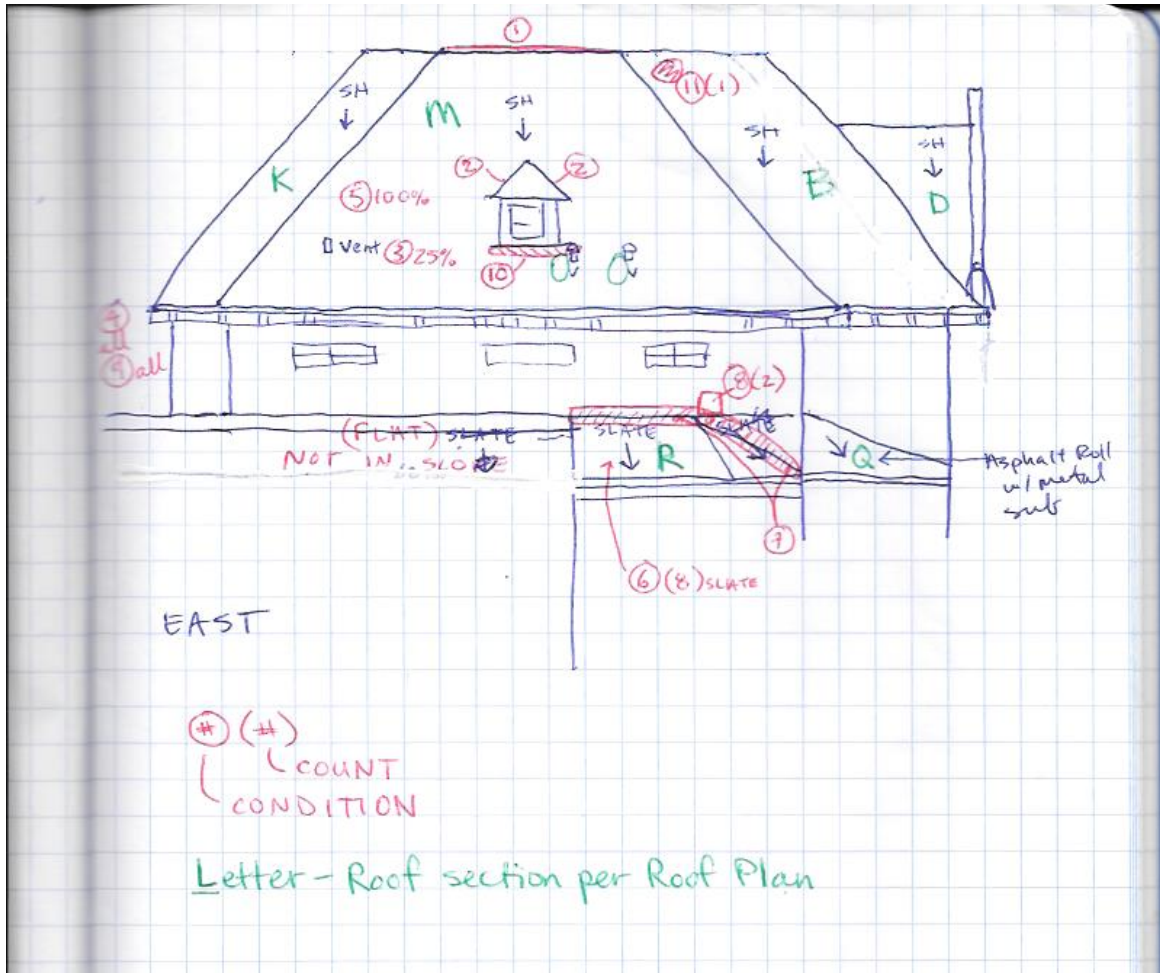 ①
SH
M
SH
⑪(1)
SH
SH
K
② ②
B
D
⑤ 100%
▯ Vent ③ 25%
⑩
④
all
⑨ all
⑧(2)
(FLAT) SLATE
NOT IN SLOPE
SLATE
SLATE
R
Q
Asphalt Roll
w/ metal
sub
⑦
⑥(8) SLATE
EAST
(#) (#)
COUNT
CONDITION
Letter - Roof section per Roof Plan